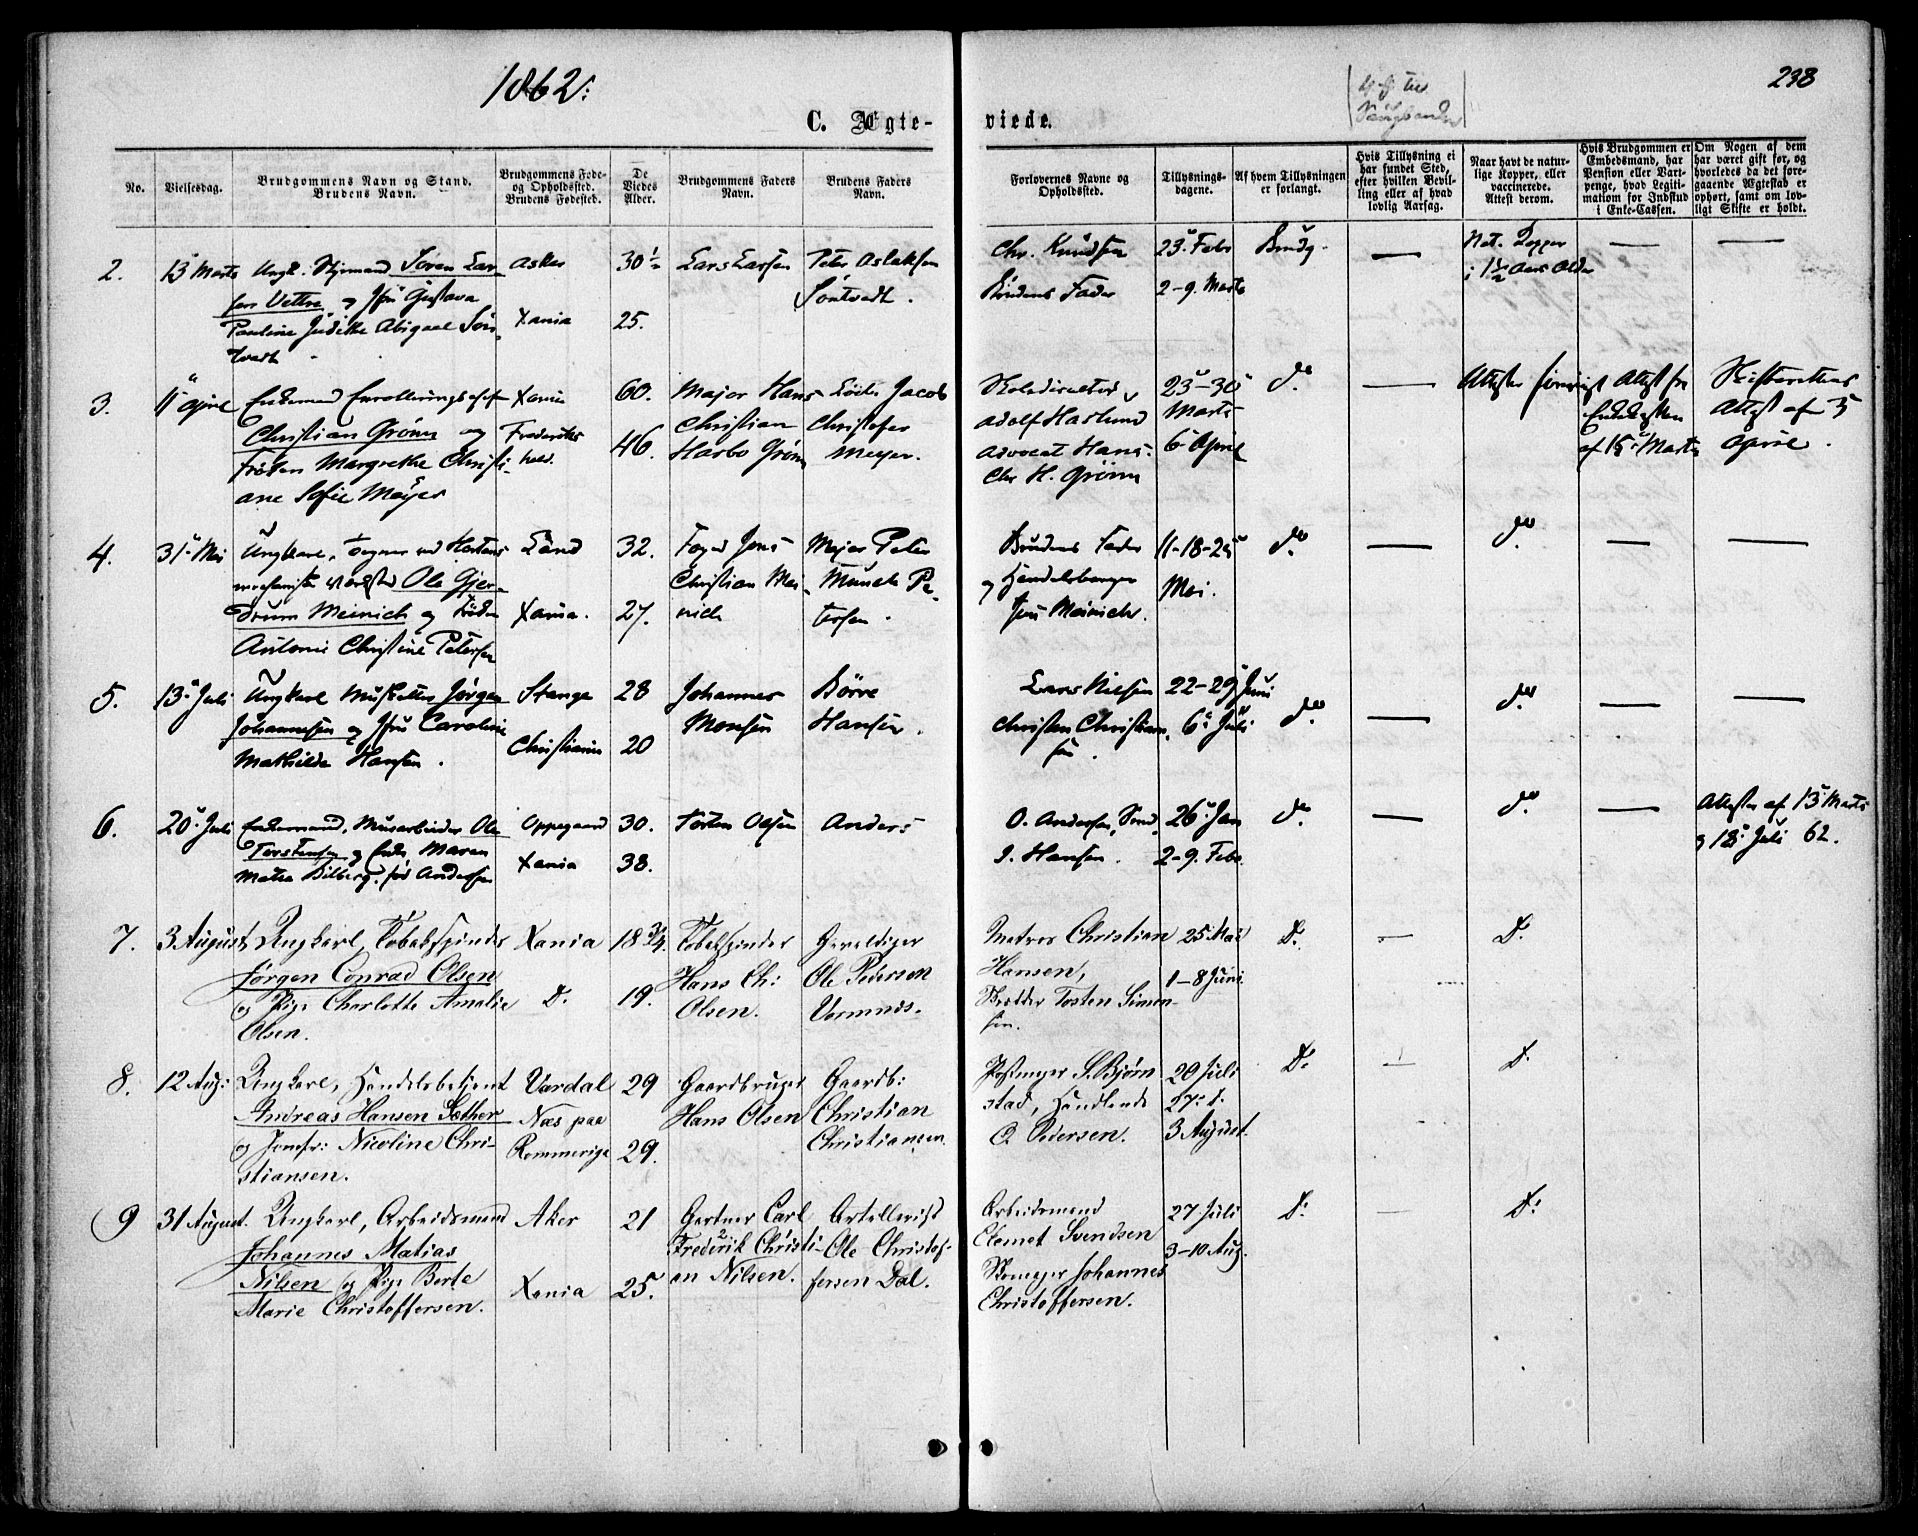 1862:
238
C. Ægte-
viede.
No.
Vielsesdag.
Brudgommens Navn og Stand.
Brudens Navn.
Brudgommens Føde-
og Opholdssted.
Brudens Fødested.
De
Viedes
Alder.
Brudgommens Faders
Navn.
Brudens Faders
Navn.
Forlovernes Navne og
Opholdssted.
Tillysnings-
dagene.
Af hvem Tillysningen
er forlangt.
Hvis Tillysning ei
har fundet Sted,
efter hvilken Bevil-
ling eller af hvad
lovlig Aarsag.
Naar havt de natur-
lige Kopper, eller
vaccinerede.
Attest derom.
Hvis Brudgommen er
Embedsmand, har
Pension eller Vart-
penge, hvad Legiti-
mation for Indskud
i Enke-Cassen.
Om Nogen af dem
har været gift før, og
hvorledes da det fore-
gaaende Ægteskab er
ophørt, samt om lov-
ligt Skifte er holdt.
2. 13 Marts Ungk. Styrmand Søren Lar- Asker 30½ Lars Larsen Peter Aslaksen
sen Vettre og Jfru Gustava Sontvedt.
Pauline Judithe Abigael Son- Xania 25.
tvedt
Chr. Knudsen 23 Febr Brudg. — Nat. Kopper — —
Brudens Fader 2-9. Marts i 1½ Aars Alder
3. 11 April Enkemand Enrolleringschef Xania 60. Major Hans Jacob
Christian Grønn og Frederiks- 46. Christian Christofer
Frøken Margrethe Christi- hald. Harbo Grønn Meyer.
ane Sofie Meyer
23-30 do. — Attester Attest fra
Adolf Haslund Marts Enkekassen Attest af 5
Advocat Hans 6 April af 15 Marts April.
Chr H. Grønn
4. 31 Mai Ungkarl, Tegner ved Hortens Land 32. Foged Jens Major Peter
mechaniske Værksted Ole Gjer- Christian Mei- Munch Pe-
drum Meinich og Frøken Xania. 27. nich tersen.
Antonie Christine Petersen
Brudens Fader 11-18-25 do. — do. — —
og Handelsborger Mai.
Jens Meinich.
5. 13 Juli Ungkarl Musketter Jørgen Stange 28 Johannes Börre
Johannesen og Jfru Caroline Monsen Hansen.
Mathilde Hansen. Christiania 20
Lars Nielsen 22-29 Juni do. — do. — —
Christen Christian- 6 Juli
sen.
6. 20 Juli Enkemand, Murarbeider Ole Oppegaard 30. Torsten Olsen Anders
Torstensen og Enke Maren Xania 38.
Mathea Bilberg, fød Andersen
O. Andersen, 26 Jan do. — do. — Attester af 13 Marts
I. Hansen. 2-9. Febr. og 18 Juli 62.
7. 3 August Ungkarl, Tobakspinder Xania 18¾. Tobakspinder Gevaldiger
Jørgen Conrad Olsen Hans Ch: Ole Pedersen
og Pige Charlotte Amalie D. 19. Olsen. Vormnæs.
Olsen.
Matros Christian 25 Mai D. — D.
Hansen, 1-8 Juni.
Tosten Simen-
sen.
8. 12 Aug: Ungkarl, Handelsbetjent Vardal 29 Gaardbruger Gaardb:
Andreas Hansen Sæther Næs paa Hans Olsen Christian
og Jomfr: Nicoline Chri- Rommerige 29. Christiansen
stiansen.
S. Bjørn- 20 Juli D. — D.
stad, Handlende 27 d.
O. Pedersen. 3 August.
9 31 August. Ungkarl, Arbeidsmand Aker 21 Gartner Carl Artellerist
Johannes Matias Frederik Christi- Ole Christof-
Nilsen og Pige Berte Xania 25. an Nilsen. fersen Dal.
Marie Christoffersen.
Arbeidsmand 27 Juli D: — D:
Clemet Svendsen 3-10 Aug.
Skomager Johannes
Christoffersen.